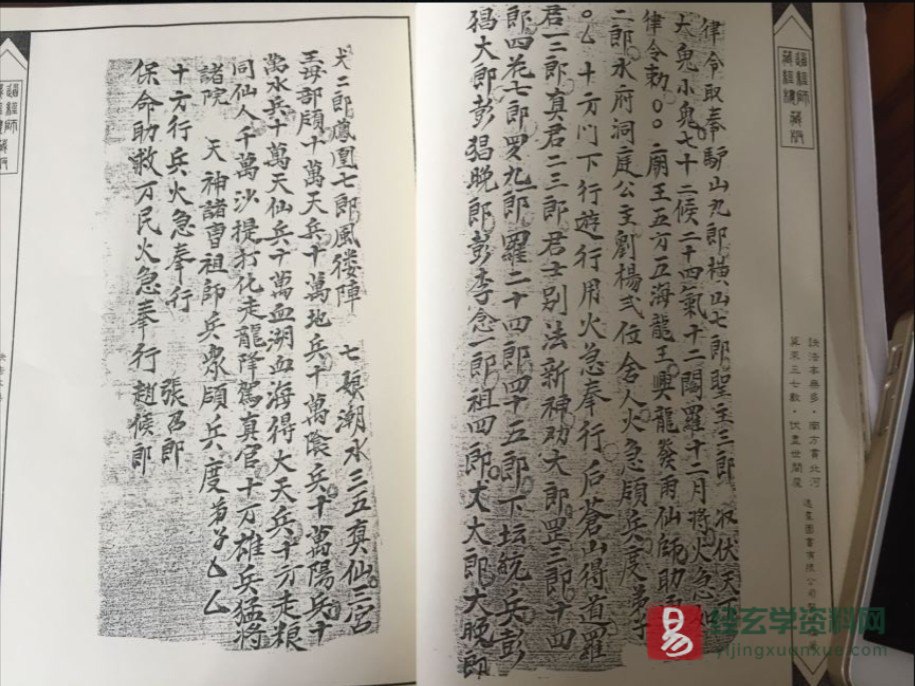 律令取奉驴山九郎横山七郎聖主三郎 収伏天
大鬼小鬼七十二候二十四氣十二閻羅十二月將火急如
律令勅〇〇廟王五方五海龍王興龍發雨仙師助
二郎水府洞庭公主劉楊弍位舍人火急頋兵度弟子
〇厶十方門下行遊行用火急奉行后蒼山得道羅
君一郎真君二三郎君壬别法新神劝大郎罡三郎十四
郎四花七郎罗九郎羅二十四郎四十五郎下坛統兵彭
猖大郎彭猖晚郎彭李念一郎祖四郎犬大郎大晚郎
犬二郎鳳凰七郎風倭障 七娘潮水三五真仙三宫
王母部頋十萬天兵十萬地兵十萬陰兵十萬陽兵十
萬水兵十萬天仙兵十萬血湖血海得大天兵十方走粮
同仙人千萬沙提打化走龍降駕真官十万雄兵猛將
諸院 天神諸曹祖師兵眾頋兵度弟子厶厶
十方行兵火急奉行 張召郎
保命助救万民火急奉行趙候郎
訣法本無多·南方貫北河
算來三七數·伏盡世間魔
易
经玄学资料网
yijingxuanxue.com